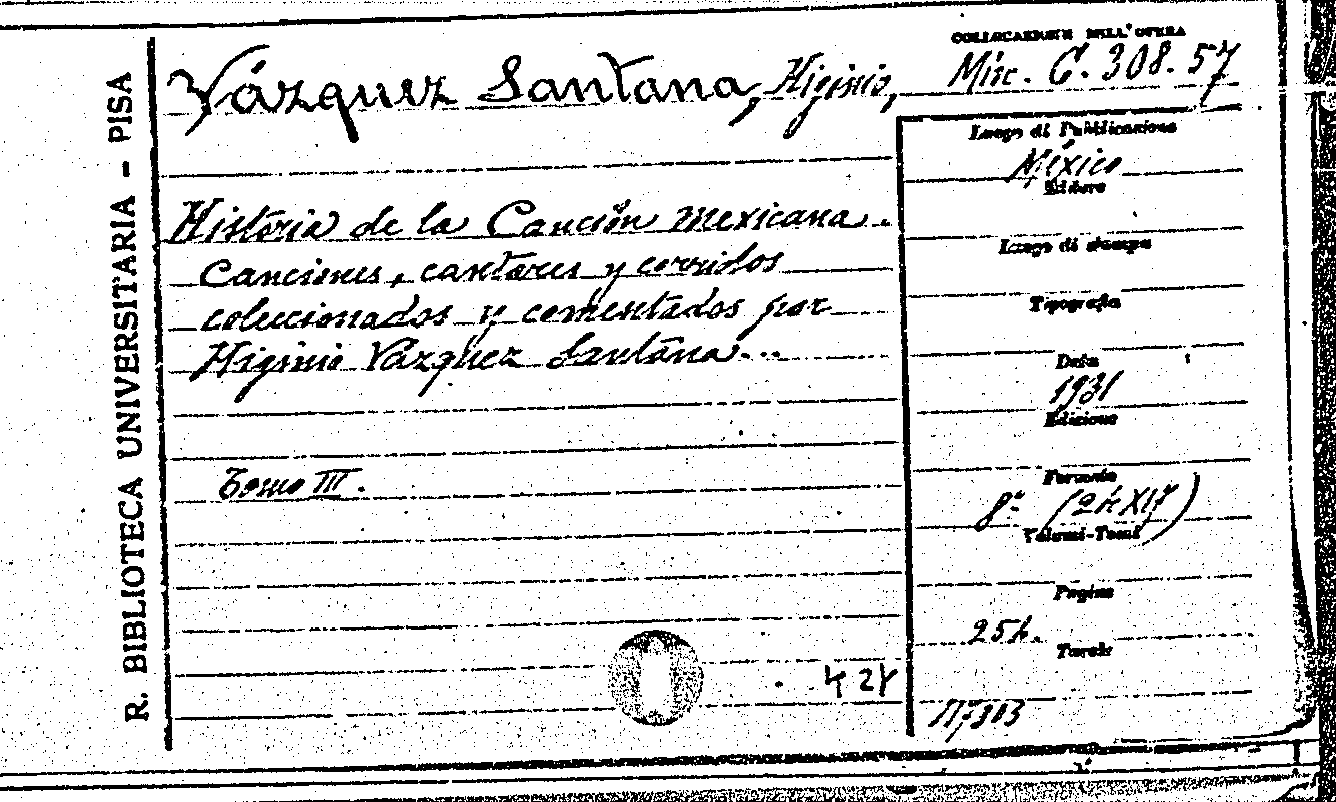 R. BIBLIOTECA UNIVERSITARIA - PISA
Vázquez Santana, Higinio,
COLLOCAZIONE DELL'OPERA
Misc. C. 308. 57
Historia de la Canción Mexicana.
Canciones, cantares y corridos
coleccionados y comentados por
Higinio Vázquez Santana...
Tomo III.
Luogo di Pubblicazione
México
Editore
Luogo di stampa
Tipografia
Data
1931
Edizione
Formato
8º (24x17)
Volumi-Tomi
Pagine
254.
Tavole